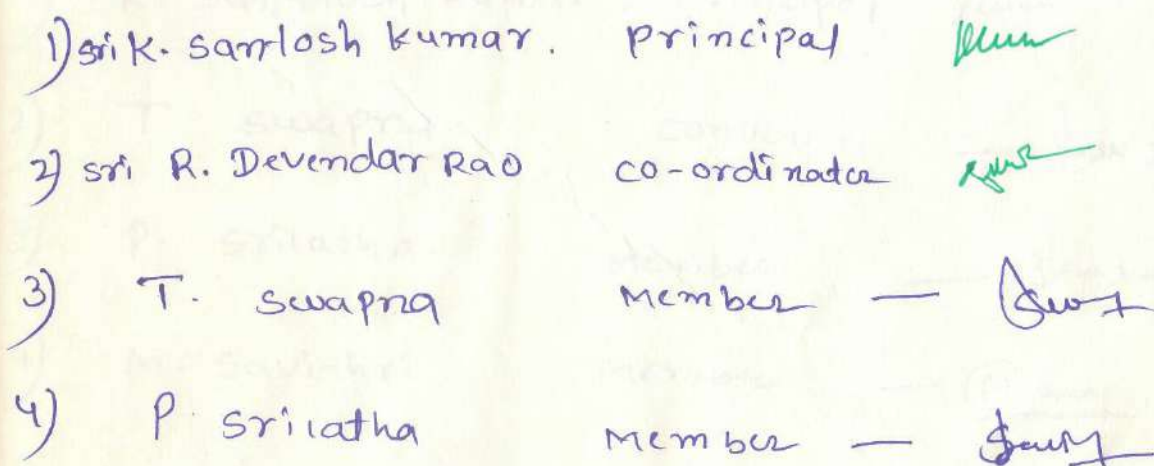 1) sri K. Santosh kumar. principal
2) sri R. Devendar Rao co-ordinator
3) T. swapna Member —
4) P. Srilatha Member —